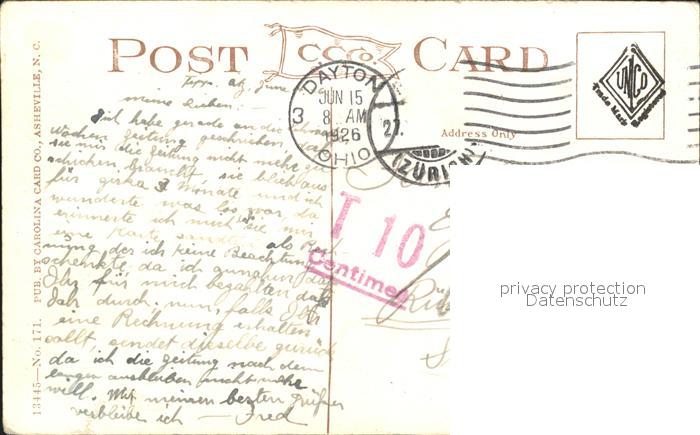 POST CARD
CCCo.
Meine Lieben:
Ich habe gerade an die
Wochen Zeitung geschrieben
sie mir die Zeitung nicht mehr zu
schicken braucht, sie blieb aus
für zirka 3 Monate und ich
wunderte was los war, da
erinnerte ich mich sie mir
eine Karte sandten als
nung der ich keine Beachtung
schenkte, da ich annahm das
Ihr für mich bezahlten das
Jahr durch. nun, falls Ihr
eine Rechnung erhalten
sollt, sendet dieselbe zurück
da ich die Zeitung nach dem
langen ausbleiben nicht mehr
will. Mit meinen besten Grüssen
verbleibe ich — Fred
13445—No. 171. PUB. BY CAROLINA CARD CO., ASHEVILLE, N. C.
DAYTON
3
JUN 15
8 AM
1926
OHIO
27.
(ZÜRICH)
Address Only
UNCO
Trade Mark Registered
T 10
Centimes
privacy protection
Datenschutz